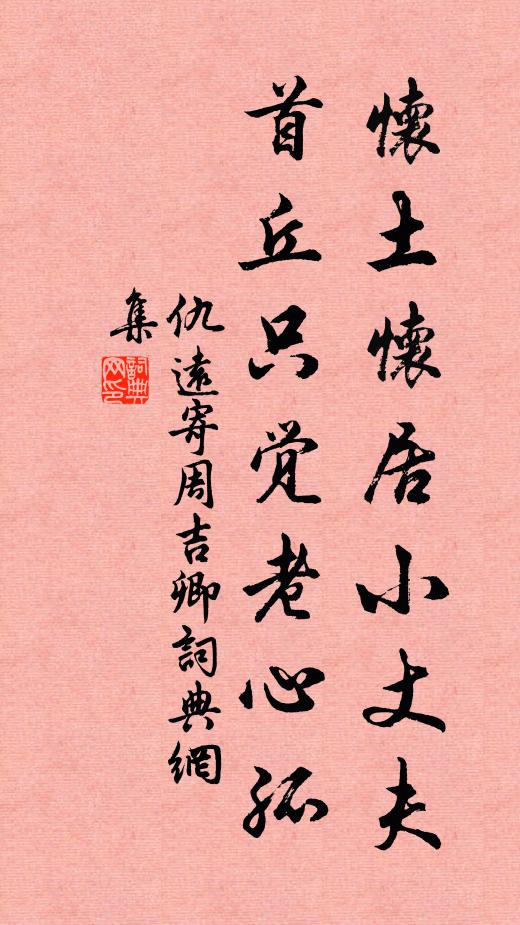 懷土懷居小丈夫
首丘只覺老心孤
仇遠寄周吉卿詞典網
集
詞典
网印